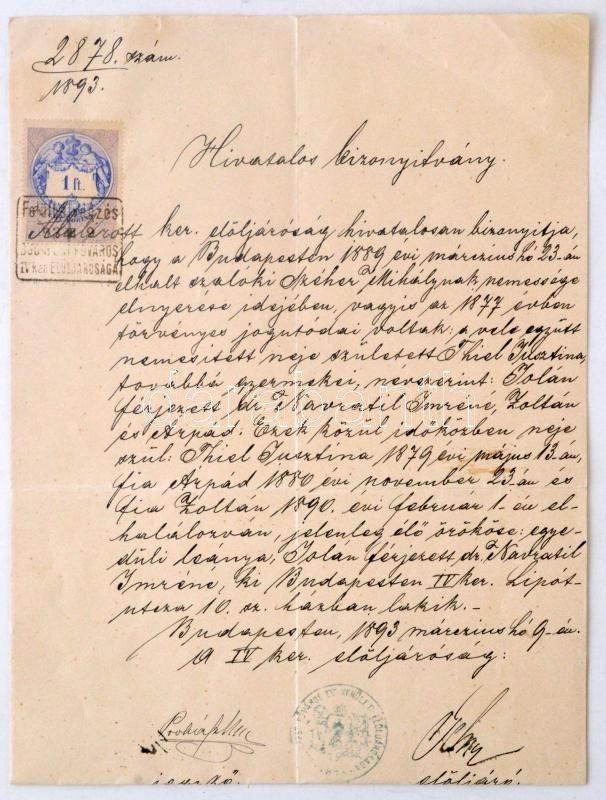 2878. szám.
1893.
Hivatalos bizonyitvány.
1 ft.
BUDAPEST FŐVÁROS
IV KER ELÖLJÁRÓSÁGA
Alulirott ker. elöljáróság hivatalosan bizonyitja,
hogy a Budapesten 1889 évi márczius hó 23.-án
elhalt szalóki Széher Mihálynak nemessége
elnyerése idejében, vagyis az 1877 évben
törvényes jogutódai voltak: a vele együtt
nemesitett neje született Thiel Jusztina,
továbbá gyermekei, névszerint: Jolán
férjezett dr. Navratil Imréné, Zoltán
és Árpád. Ezek közül időközben neje
szül: Thiel Jusztina 1879 évi május 13.-án,
fia Árpád 1880 évi november 23.-án és
fia Zoltán 1890. évi február 1-én el-
halálozván, jelenleg élő örököse: egye-
düli leánya, Jolán férjezett dr. Navratil
Imréné, ki Budapesten IV ker. Lipót-
utcza 10. sz. házban lakik.-
Budapesten, 1893 márczius hó 9-én.
A IV ker. elöljáróság:
elöljáró.
darabanth.com